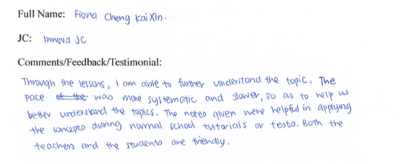 Full Name: Fiona Cheng Kai Xin.
JC: Innova JC
Comments/Feedback/Testimonial:
Through the lessons, I am able to further understand the topic. The
pace of the was more systematic and slower, so as to help us
better understand the topics. The notes given were helpful in applying
the concepts during normal school tutorials or tests. Both the
teachers and the students are friendly.